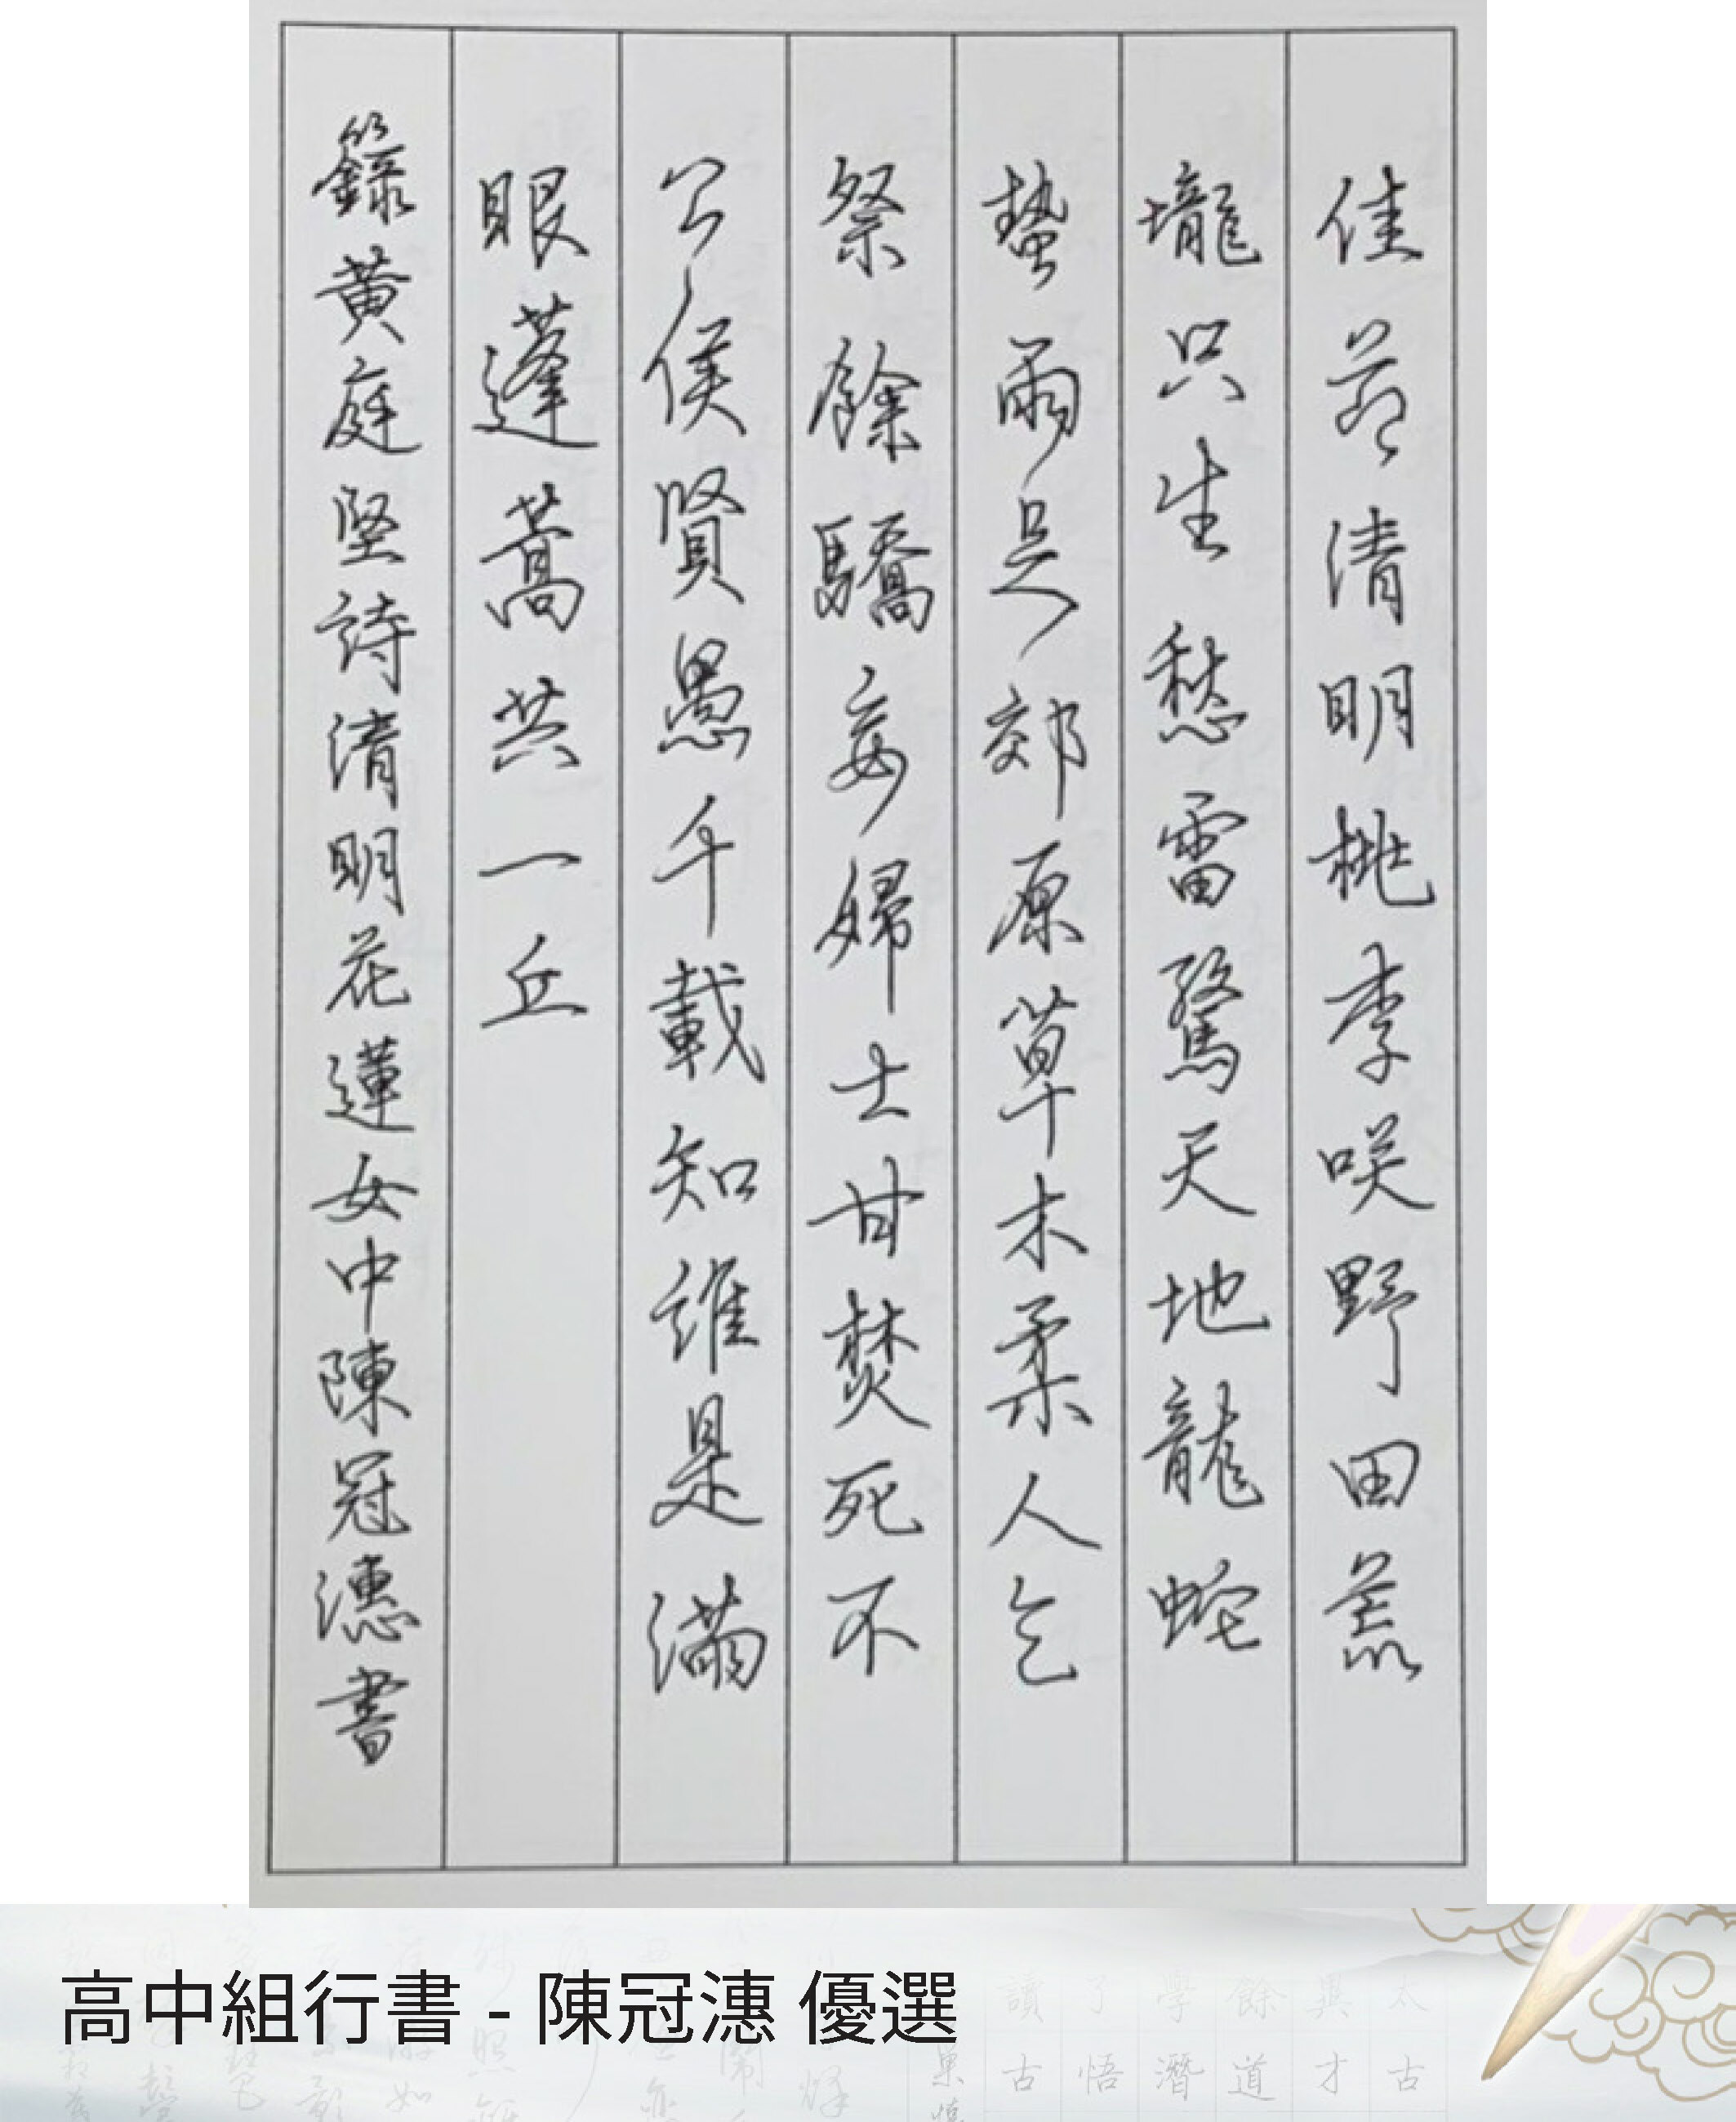 佳節清明桃李咲野田荒
壠只生愁雷驚天地龍蛇
蟄雨足郊原草木柔人乞
祭餘驕妾婦士甘焚死不
公侯賢愚千載知誰是滿
眼蓬蒿共一丘
籙黃庭堅詩清明花蓮女中陳冠漶書
高中組行書 - 陳冠漶 優選